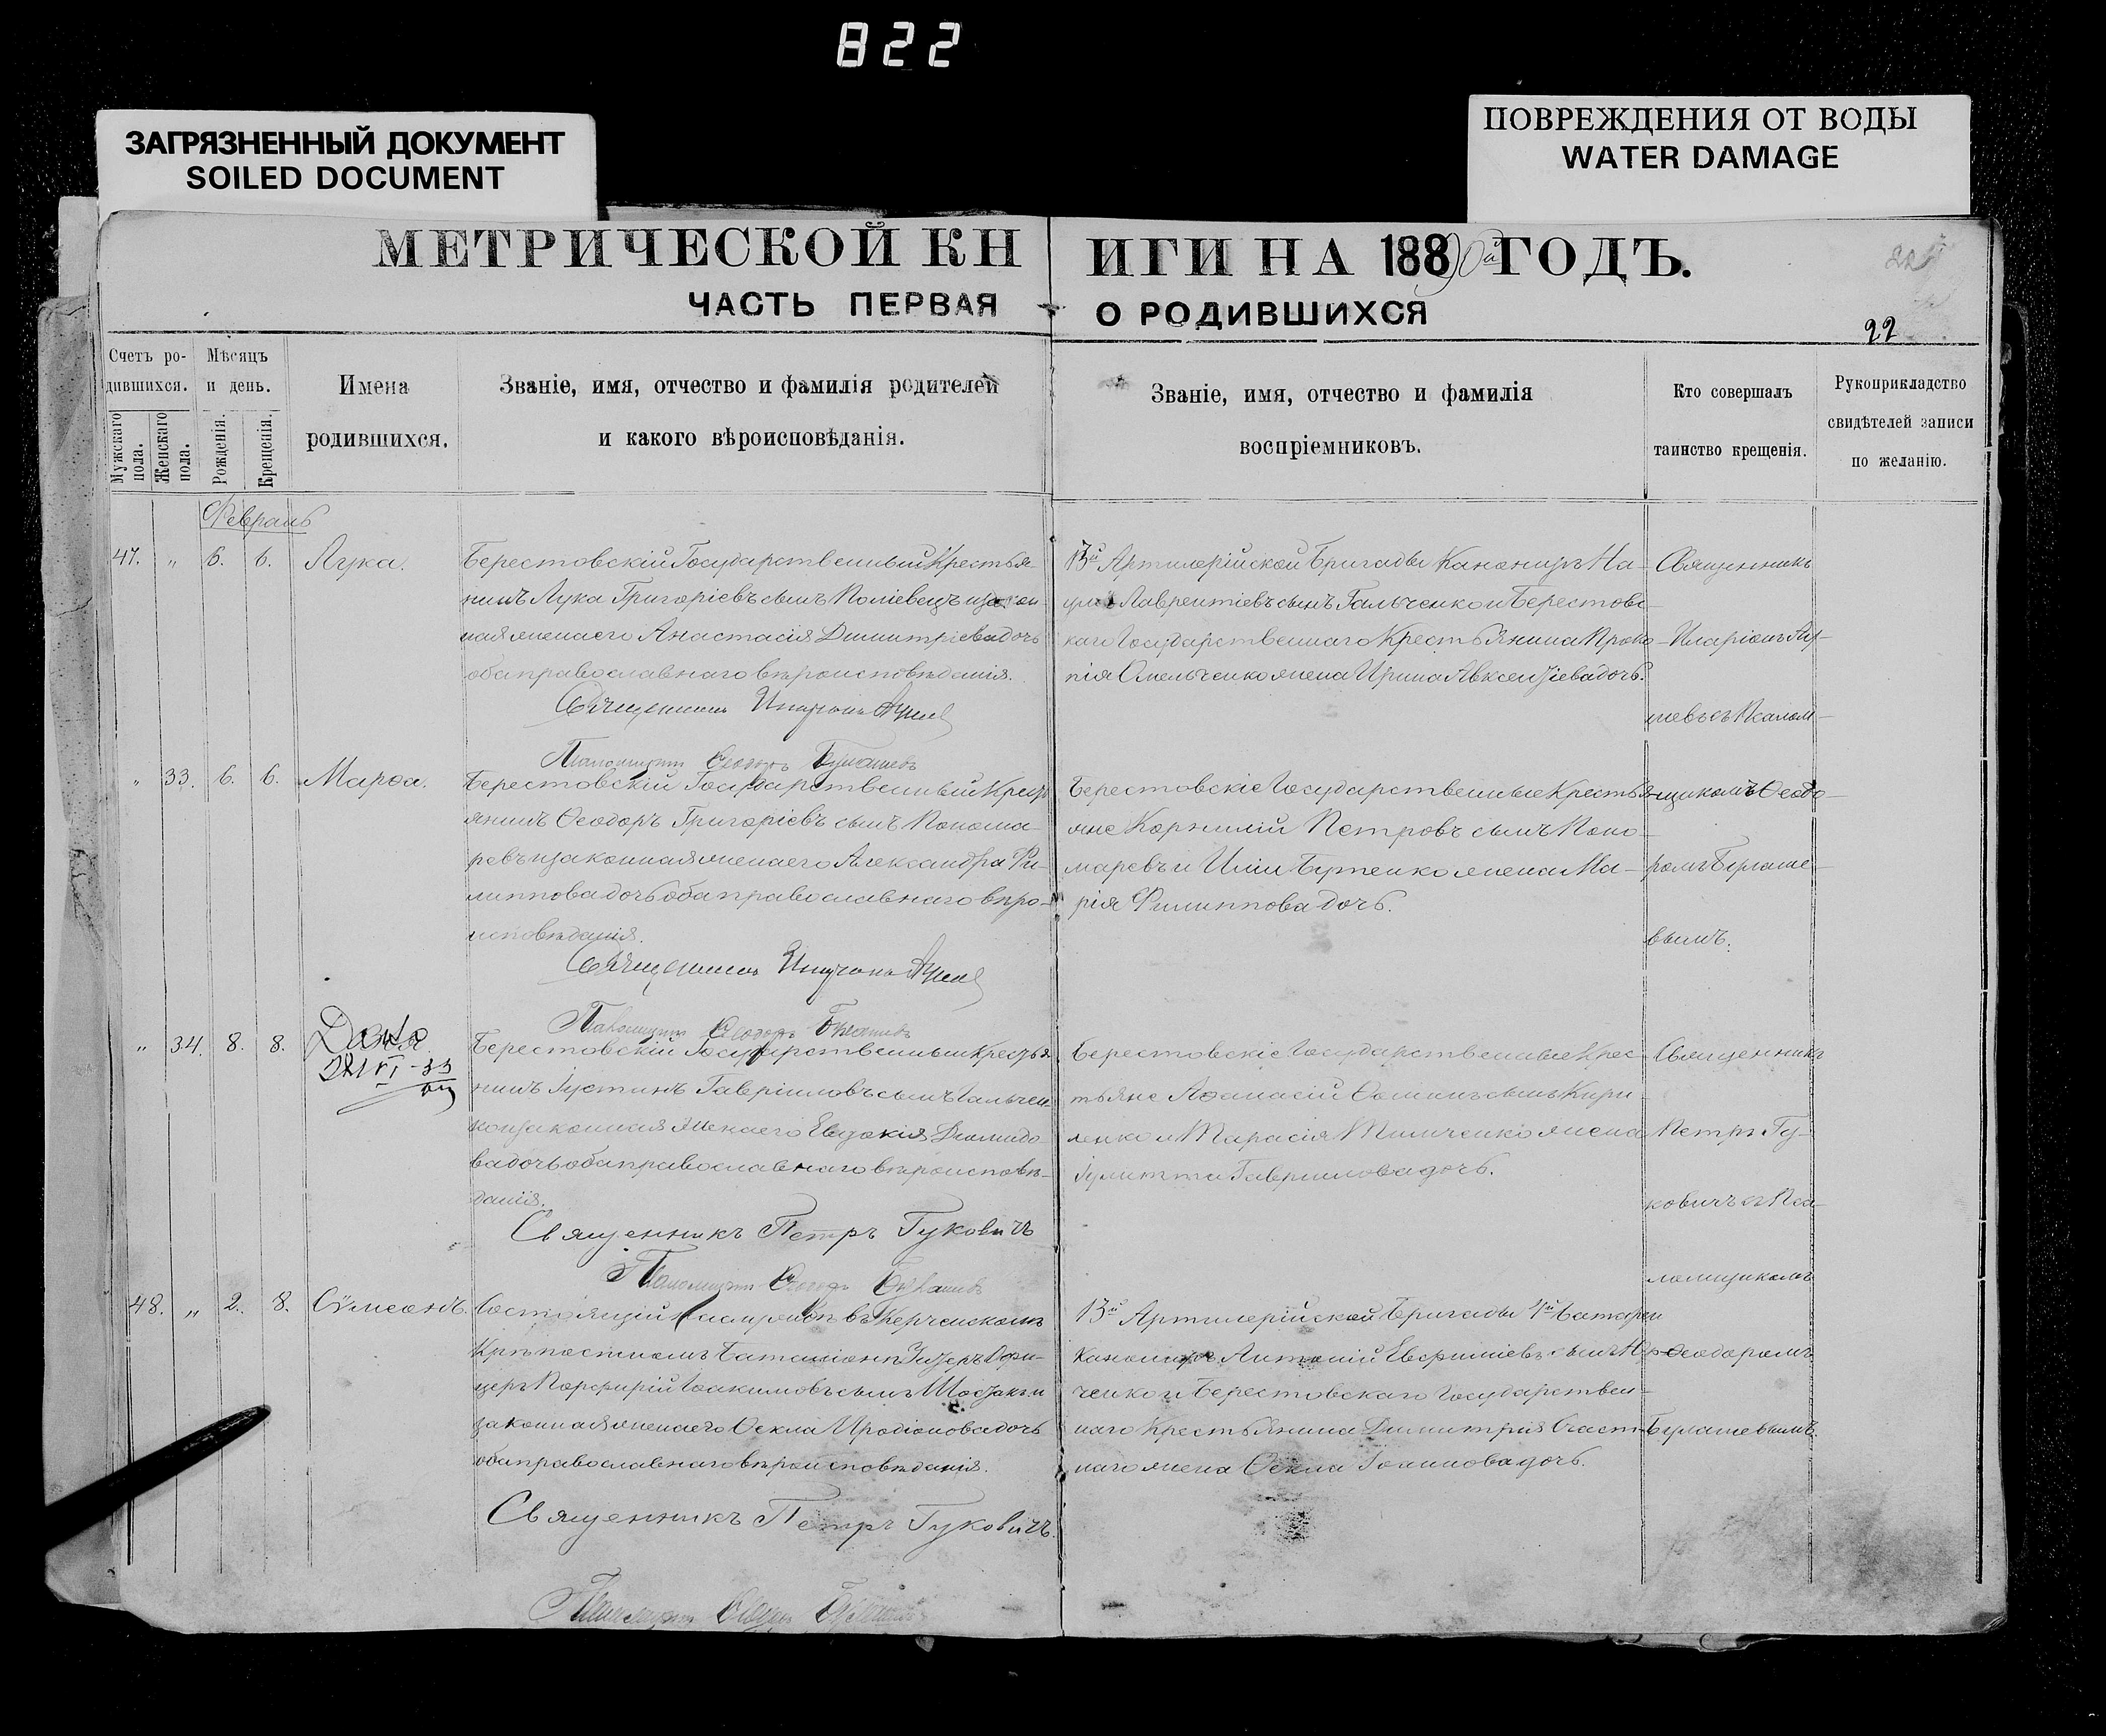 822
ЗАГРЯЗНЕННЫЙ ДОКУМЕНТ
SOILED DOCUMENT
ПОВРЕЖДЕНИЯ ОТ ВОДЫ
WATER DAMAGE
МЕТРИЧЕСКОЙ КН ИГИ НА 1890й ГОДЪ.
ЧАСТЬ ПЕРВАЯ О РОДИВШИХСЯ
22
Счетъ ро-
дившихся.
Мужскаго пола.
Женскаго пола.
Мѣсяцъ
и день.
Рожденія.
Крещенія.
Имена
родившихся.
Званіе, имя, отчество и фамилія родителей
и какого вѣроисповѣданія.
Званіе, имя, отчество и фамилія
воспріемниковъ.
Кто совершалъ
таинство крещенія.
Рукоприкладство
свидѣтелей записи
по желанію.
Февраль
47. " 6. 6. Лука.
Берестовскій Государственный Крестья-
нинъ Лука Григоріевъ сынъ Поліевецъ и закон-
ная жена его Анастасія Димитріева дочь
оба православнаго вѣроисповѣданія.
Священникъ
13й Артилерійской Бригады Канониръ На-
умъ Лаврентіевъ сынъ Гальченко и Берестовс-
каго Государственнаго Крестьянина Проко-
пія Омельченко жена Ирина Авксентіева дочь.
Священникъ
Иларіонъ
шевъ съ Псалом-
" 33. 6. 6. Марѳа.
Псаломщикъ Ѳеодоръ
Берестовскій Государственный Крест-
янинъ Ѳеодоръ Григоріевъ сынъ Понома-
ревъ и законная жена его Александра Фи-
липпова дочь оба православнаго вѣро-
исповѣданія.
Священникъ
Берестовскіе Государственные Крестья-
яне Корнилій Петровъ сынъ Поно-
маревъ и Иліи Бутенко жена Ма-
рія Филиппова дочь.
щикомъ Ѳеодо-
ромъ Бугаше-
вымъ.
" 34. 8. 8. Дарья
Псаломщикъ Ѳеодоръ
Берестовскій Государственный Крестья-
нинъ Іустинъ Гавріиловъ сынъ Гальчен-
ко и законная жена его Евдокія Діомидо-
ва дочь оба православнаго вѣроисповѣ-
данія.
Священникъ Петръ Гуковичъ
Берестовскіе Государственные Крес-
тьяне Аѳанасій Ѳоминъ сынъ Кири-
ленко и Тарасія жена
Іулитта Гавріилова дочь.
Священникъ
Петръ Гу-
ковичъ съ Пса-
ломщикомъ
Псаломщикъ Ѳеодоръ
48. " 2. 8. Сѵмеонъ.
Состоящій въ Керченскомъ
Крѣпостномъ Баталіонѣ Унтеръ Офи-
церъ Порфирій Іоакимовъ сынъ
законная жена его Ѳекла Иродіонова дочь
оба православнаго вѣроисповѣданія.
Священникъ Петръ Гуковичъ.
13й Артилерійской Бригады 4й Батареи
Канониръ Антоній сынъ
ченко и Берестовскаго Государствен-
наго Крестьянина Димитрія Счаст-
наго жена Ѳекла Іоаннова дочь.
Ѳеодоромъ
Бугашевымъ.
Псаломщикъ Ѳеодоръ